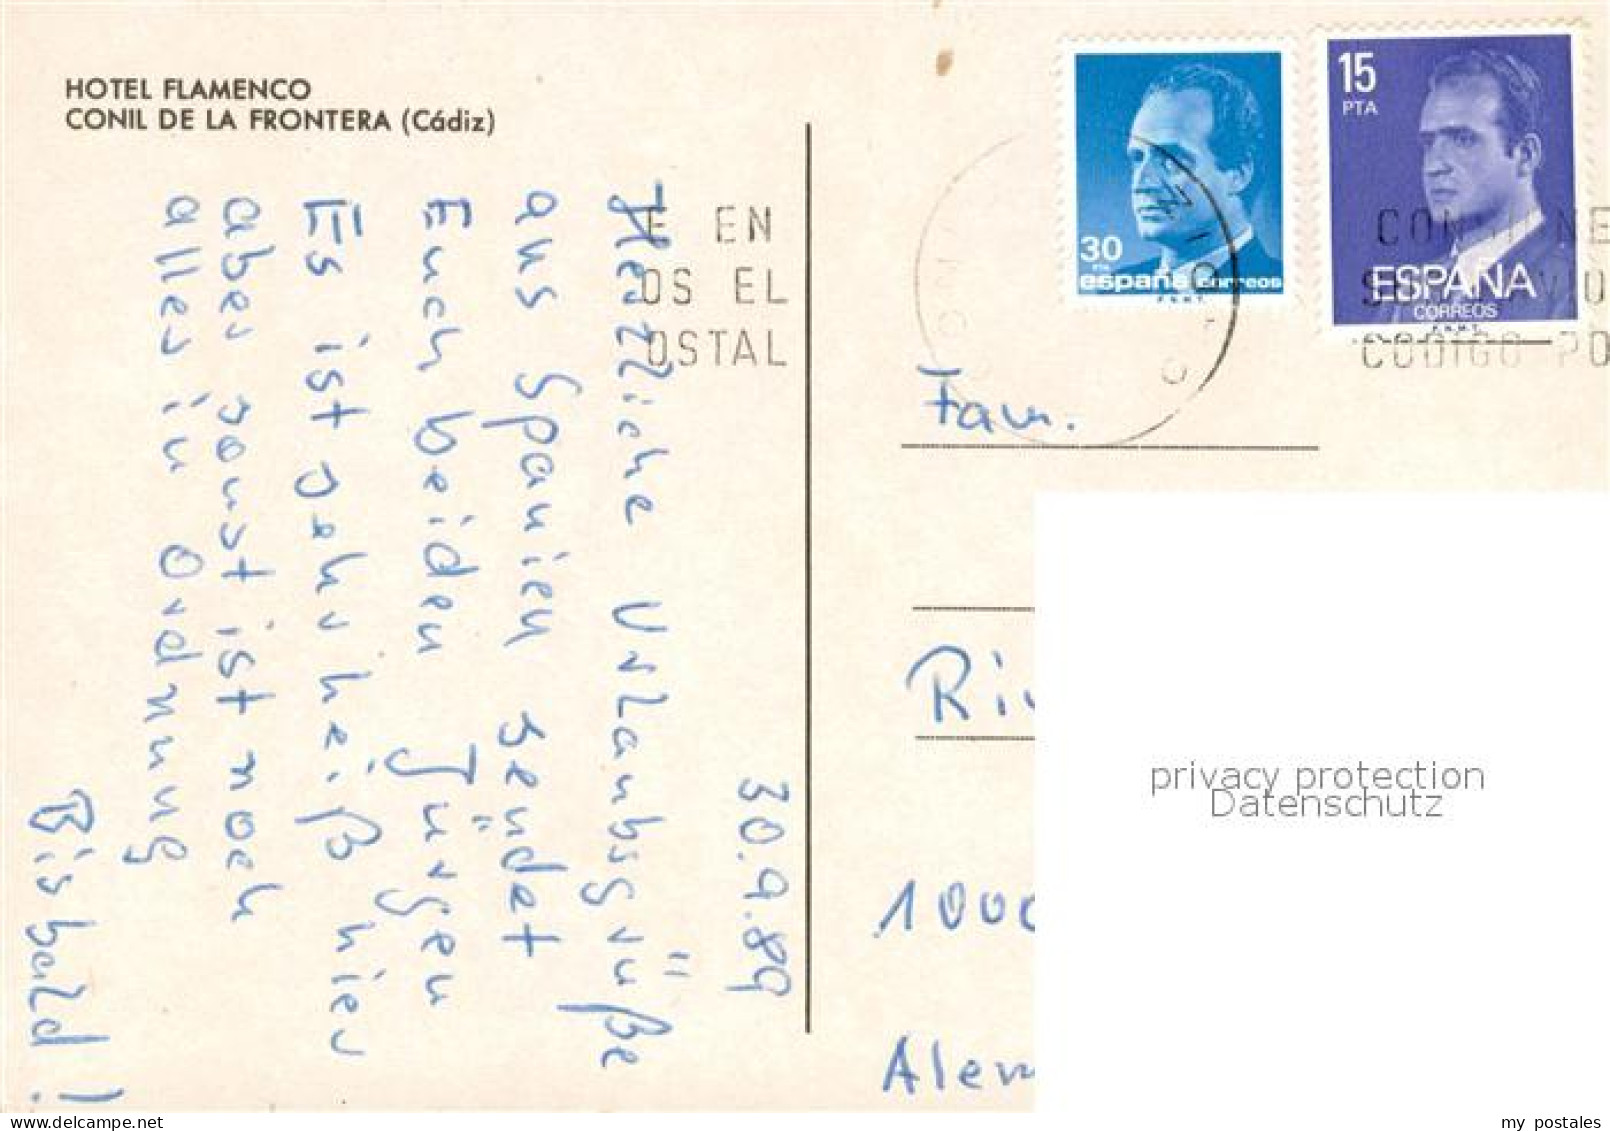 HOTEL FLAMENCO
CONIL DE LA FRONTERA (Cádiz)
30.9.89
Herzliche Urlaubsgrüße
aus Spanien sendet
Euch beiden Jürgen
Es ist sehr heiß hier
aber sonst ist noch
alles in Ordnung
Bisbald!
E EN
OS EL
OSTAL
30
PTA
españa correos
F.N.M.T.
15
PTA
ESPAÑA
CORREOS
F.N.M.T.
CODIGO PO
Fam.
Ri
1000
Alem
privacy protection
Datenschutz
my postales
www.delcampe.net